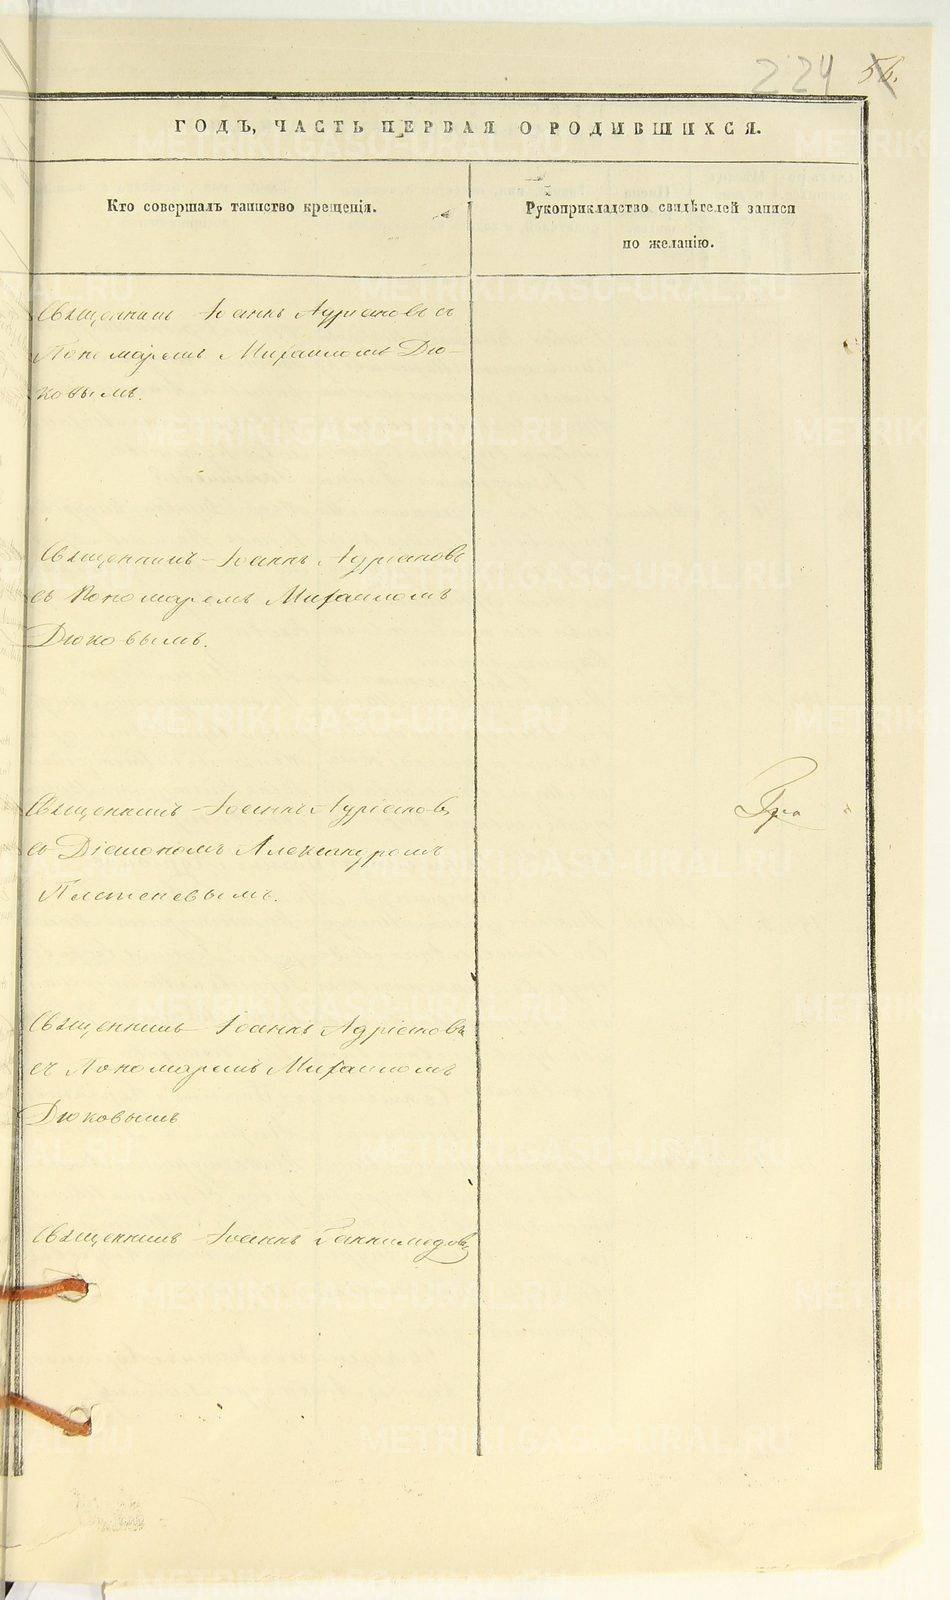 224 56.
ГОДЪ, ЧАСТЬ ПЕРВАЯ О РОДИВШИХСЯ.
Кто совершалъ таинство крещенія.
Рукоприкладство свидѣтелей записи
по желанію.
Священникъ Іоаннъ Адріановъ съ
Пономаремъ Михаиломъ Дю-
ковымъ.
Священникъ Іоаннъ Адріановъ
съ Пономаремъ Михаиломъ
Дюковымъ.
Священникъ Іоаннъ Адріановъ
съ Діакономъ Александромъ
Плотеневымъ.
Священникъ Іоаннъ Адріановъ
съ Пономаремъ Михаиломъ
Дюковымъ
Священникъ Іоаннъ
METRIKI.GASO-URAL.RU